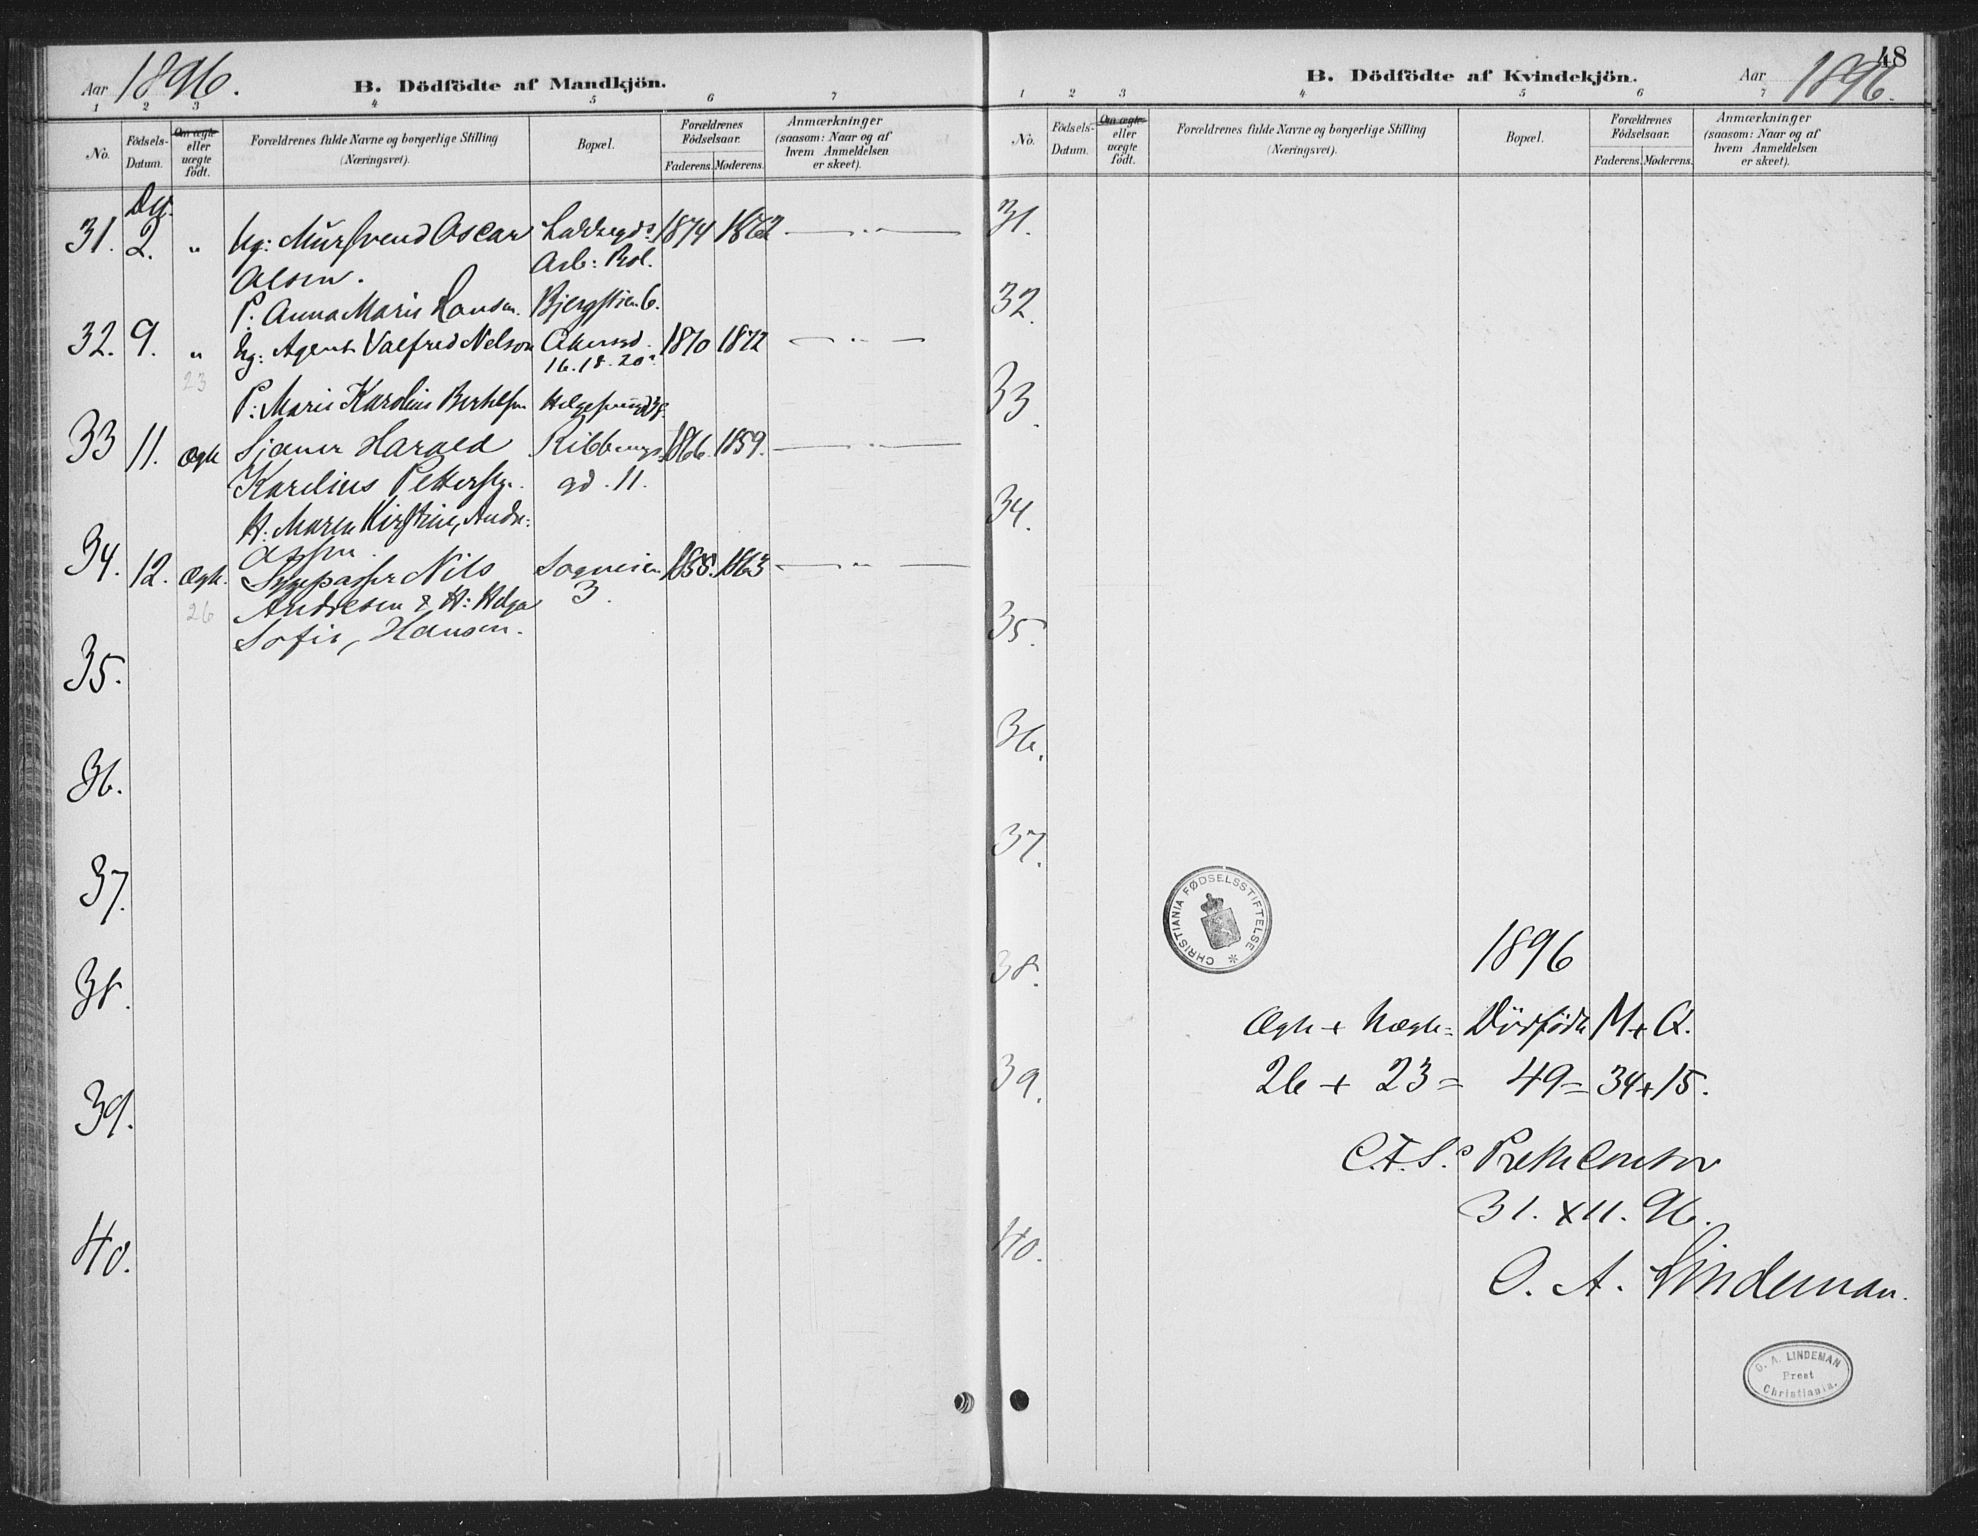 Aar 1896.
B. Dödfödte af Mandkjön.
1 2 3 4 5 6 7
No.
Födsels-Datum.
Om ægte eller uægte födt.
Forældrenes fulde Navne og borgerlige Stilling (Næringsvei).
Bopæl.
Forældrenes Födselsaar.
Faderens. Moderens.
Anmærkninger (saasom: Naar og af hvem Anmeldelsen er skeet).
31. 2. " Ug: Mursvend Oscar 1874 1872
Olsen. Arb: Bol.
P. Anna Marie Hansen. Bjergstien 6.
32. 9. " Ug: Agent Valfred Nelson Akersgd. 1870 1872
16. 18. 20
23
P: Marie Karoline Berthelsen
33 11. Ægte Sjauer Harald 1866. 1859.
Karelius Pettersen. gd. 11.
H. Maren Kirstine, Andre-
assen.
34. 12. Ægte. Nils Sogneien 1858. 1863
26 Andresen & H: Helga 3.
Sofie, Hansen.
35.
36.
37.
38.
39.
40.
48
B. Dödfödte af Kvindekjön.
Aar 1896.
1 2 3 4 5 6 7
No.
Födsels-Datum.
Om ægte eller uægte födt.
Forældrenes fulde Navne og borgerlige Stilling (Næringsvei).
Bopæl.
Forældrenes Födselsaar.
Faderens. Moderens.
Anmærkninger (saasom: Naar og af hvem Anmeldelsen er skeet).
31.
32.
33.
34.
35.
36.
37.
38.
39.
40.
CHRISTIANIA FØDSELSSTIFTELSE *
1896
Ægte + Uægte = Dødfødte M + Q.
26 + 23 = 49 = 34 + 15.
C.F.S.s Prestekontor
31. XII. 96.
O. A. Lindeman.
O. A. LINDEMAN
Prest
Christiania.